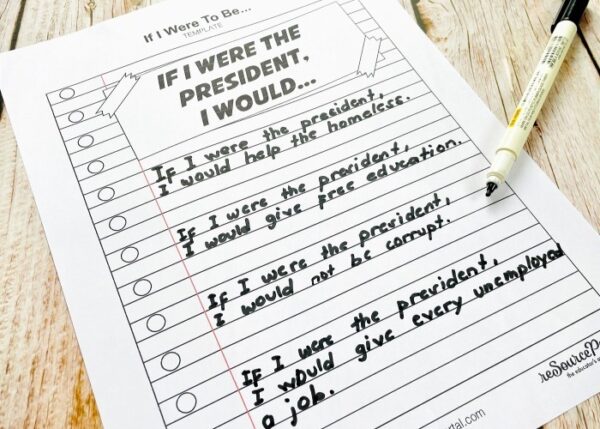 If I Were To Be...
TEMPLATE
IF I WERE THE
PRESIDENT,
I WOULD...
If I were the president,
I would help the homeless.
If I were the president,
I would give free education.
If I were the president,
I would not be corrupt.
If I were the president,
I would give every unemployed
a job.
the educator's